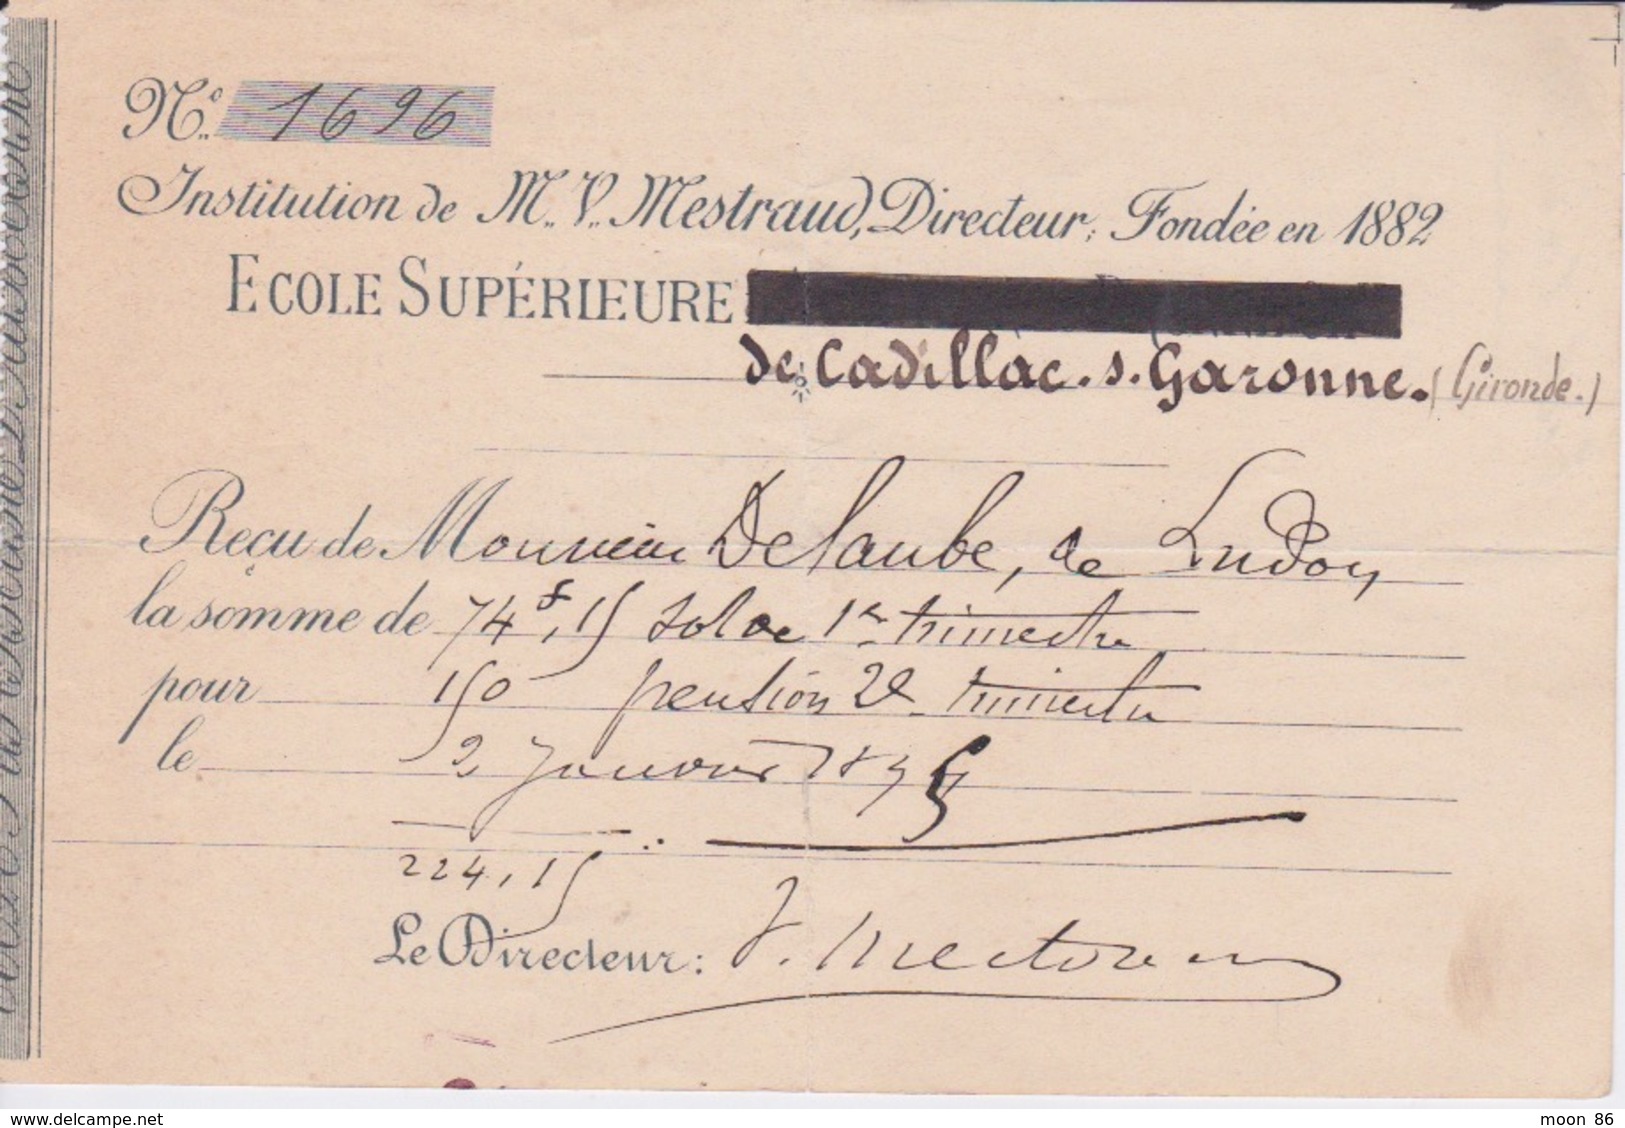 N° 1696
Institution de M. V. Mestraud, Directeur, Fondée en 1882
ECOLE SUPÉRIEURE
de Cadillac. s. Garonne. (Gironde.)
Reçu de Monsieur Delaube, de Ludon
la somme de 74f,15 solde 1er trimestre
pour 150 pension 2e trimestre
le 2 Janvier 1895
224,15
Le Directeur: V. Mestraud
www.delcampe.net
moon 86